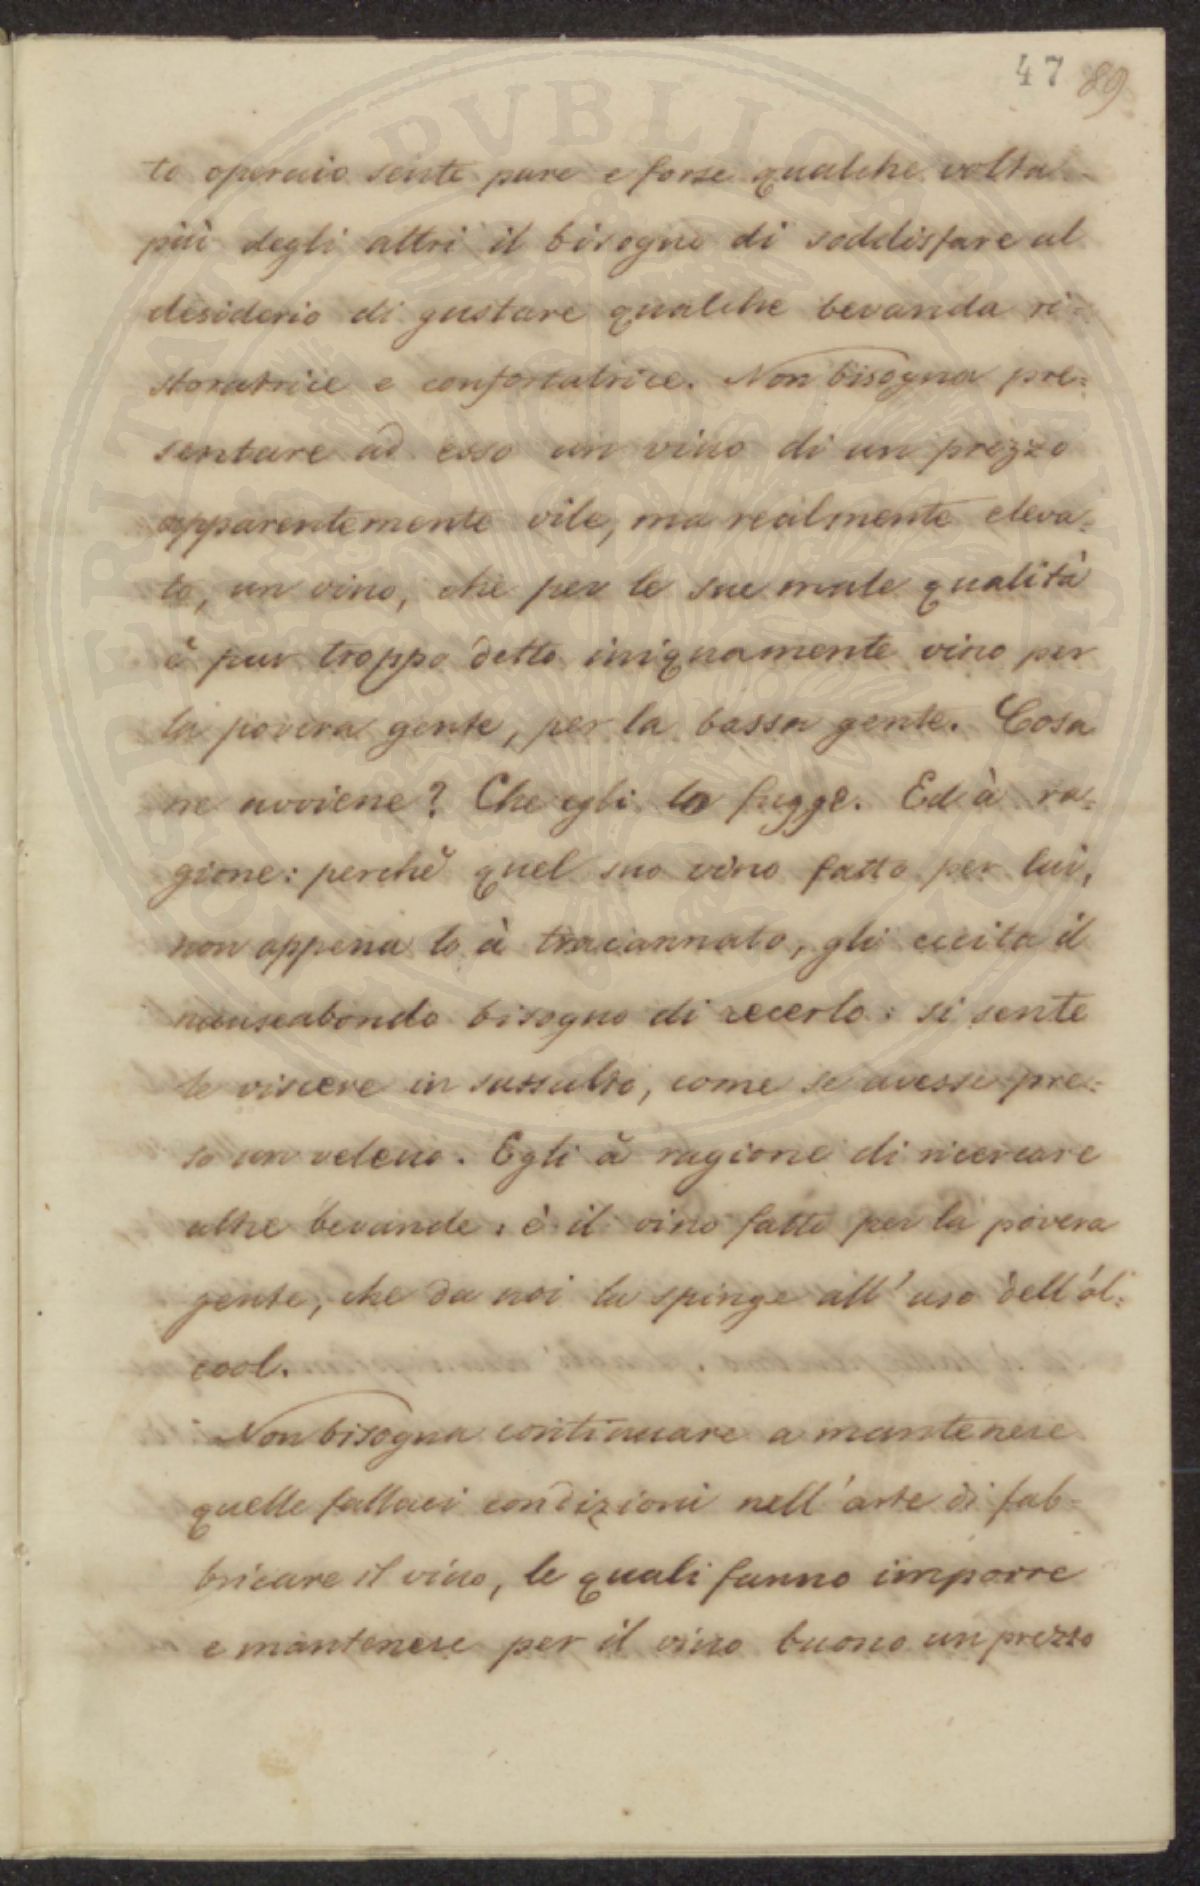 47 89
to operaio sente pure e forse qualche volta
più degli altri il bisogno di soddisfare al
desiderio di gustare qualche bevanda ri=
storatrice e confortatrice. Non bisogna pre=
sentare ad esso un vino di un prezzo
apparentemente vile, ma realmente eleva=
to, un vino, che per le sue male qualità
è pur troppo detto iniquamente vino per
la povera gente, per la bassa gente. Cosa
ne avviene? Che egli lo fugge. Ed à ra=
gione: perchè quel suo vino fatto per lui,
non appena lo à tracannato, gli eccita il
nauseabondo bisogno di recerlo: si sente
le viscere in sussulto, come se avesse pre=
so un veleno. Egli à ragione di ricercare
altre bevande: è il vino fatto per la povera
gente, che da noi la spinge all'uso dell'al=
cool.
Non bisogna continuare a mantenere
quelle fallaci condizioni nell'arte di fab=
bricare il vino, le quali fanno imporre
e mantenere per il vino buono un prezzo